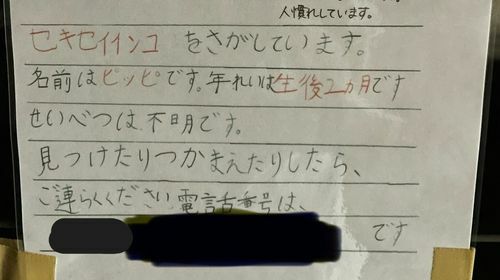 人慣れしています。
セキセイインコ をさがしています。
名前はピッピです。年れいは生後2カ月です
せいべつは不明です。
見つけたりつかまえたりしたら、
ご連らくください電話番号は、
です